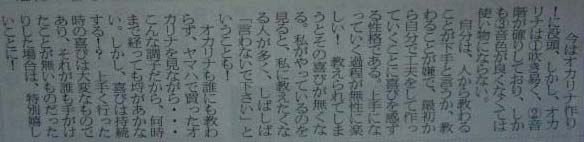 今はオカリナ作り
に没頭。しかし、オカ
リナは①吹き易く、②音
階が確りしており、しか
も③音色が良くなくては
使い物にならない。
自分は、人から教わる
ことが下手と言うか、教
わることが嫌で、最初か
ら自分で工夫をして作っ
ていくことに喜びを感ず
る性格である。上手にな
っていく過程が無性に楽
しい！教えられてしま
うとその喜びが無くな
る。私がやっているのを
見ると、私に教えたくな
る人が多く、しばしば
「言わないで下さい」と
いうことも！
オカリナも誰にも教わ
らず、ヤマハで買ったオ
カリナを見ながら・・・
こんな調子だから、何時
まで経っても埒があかな
い。しかし、喜びは持続
する！？上手く行った
時の喜びは大変なもので
あり、それが誰も手がけ
たことが無いものだった
りした場合は、特別嬉し
いことに！